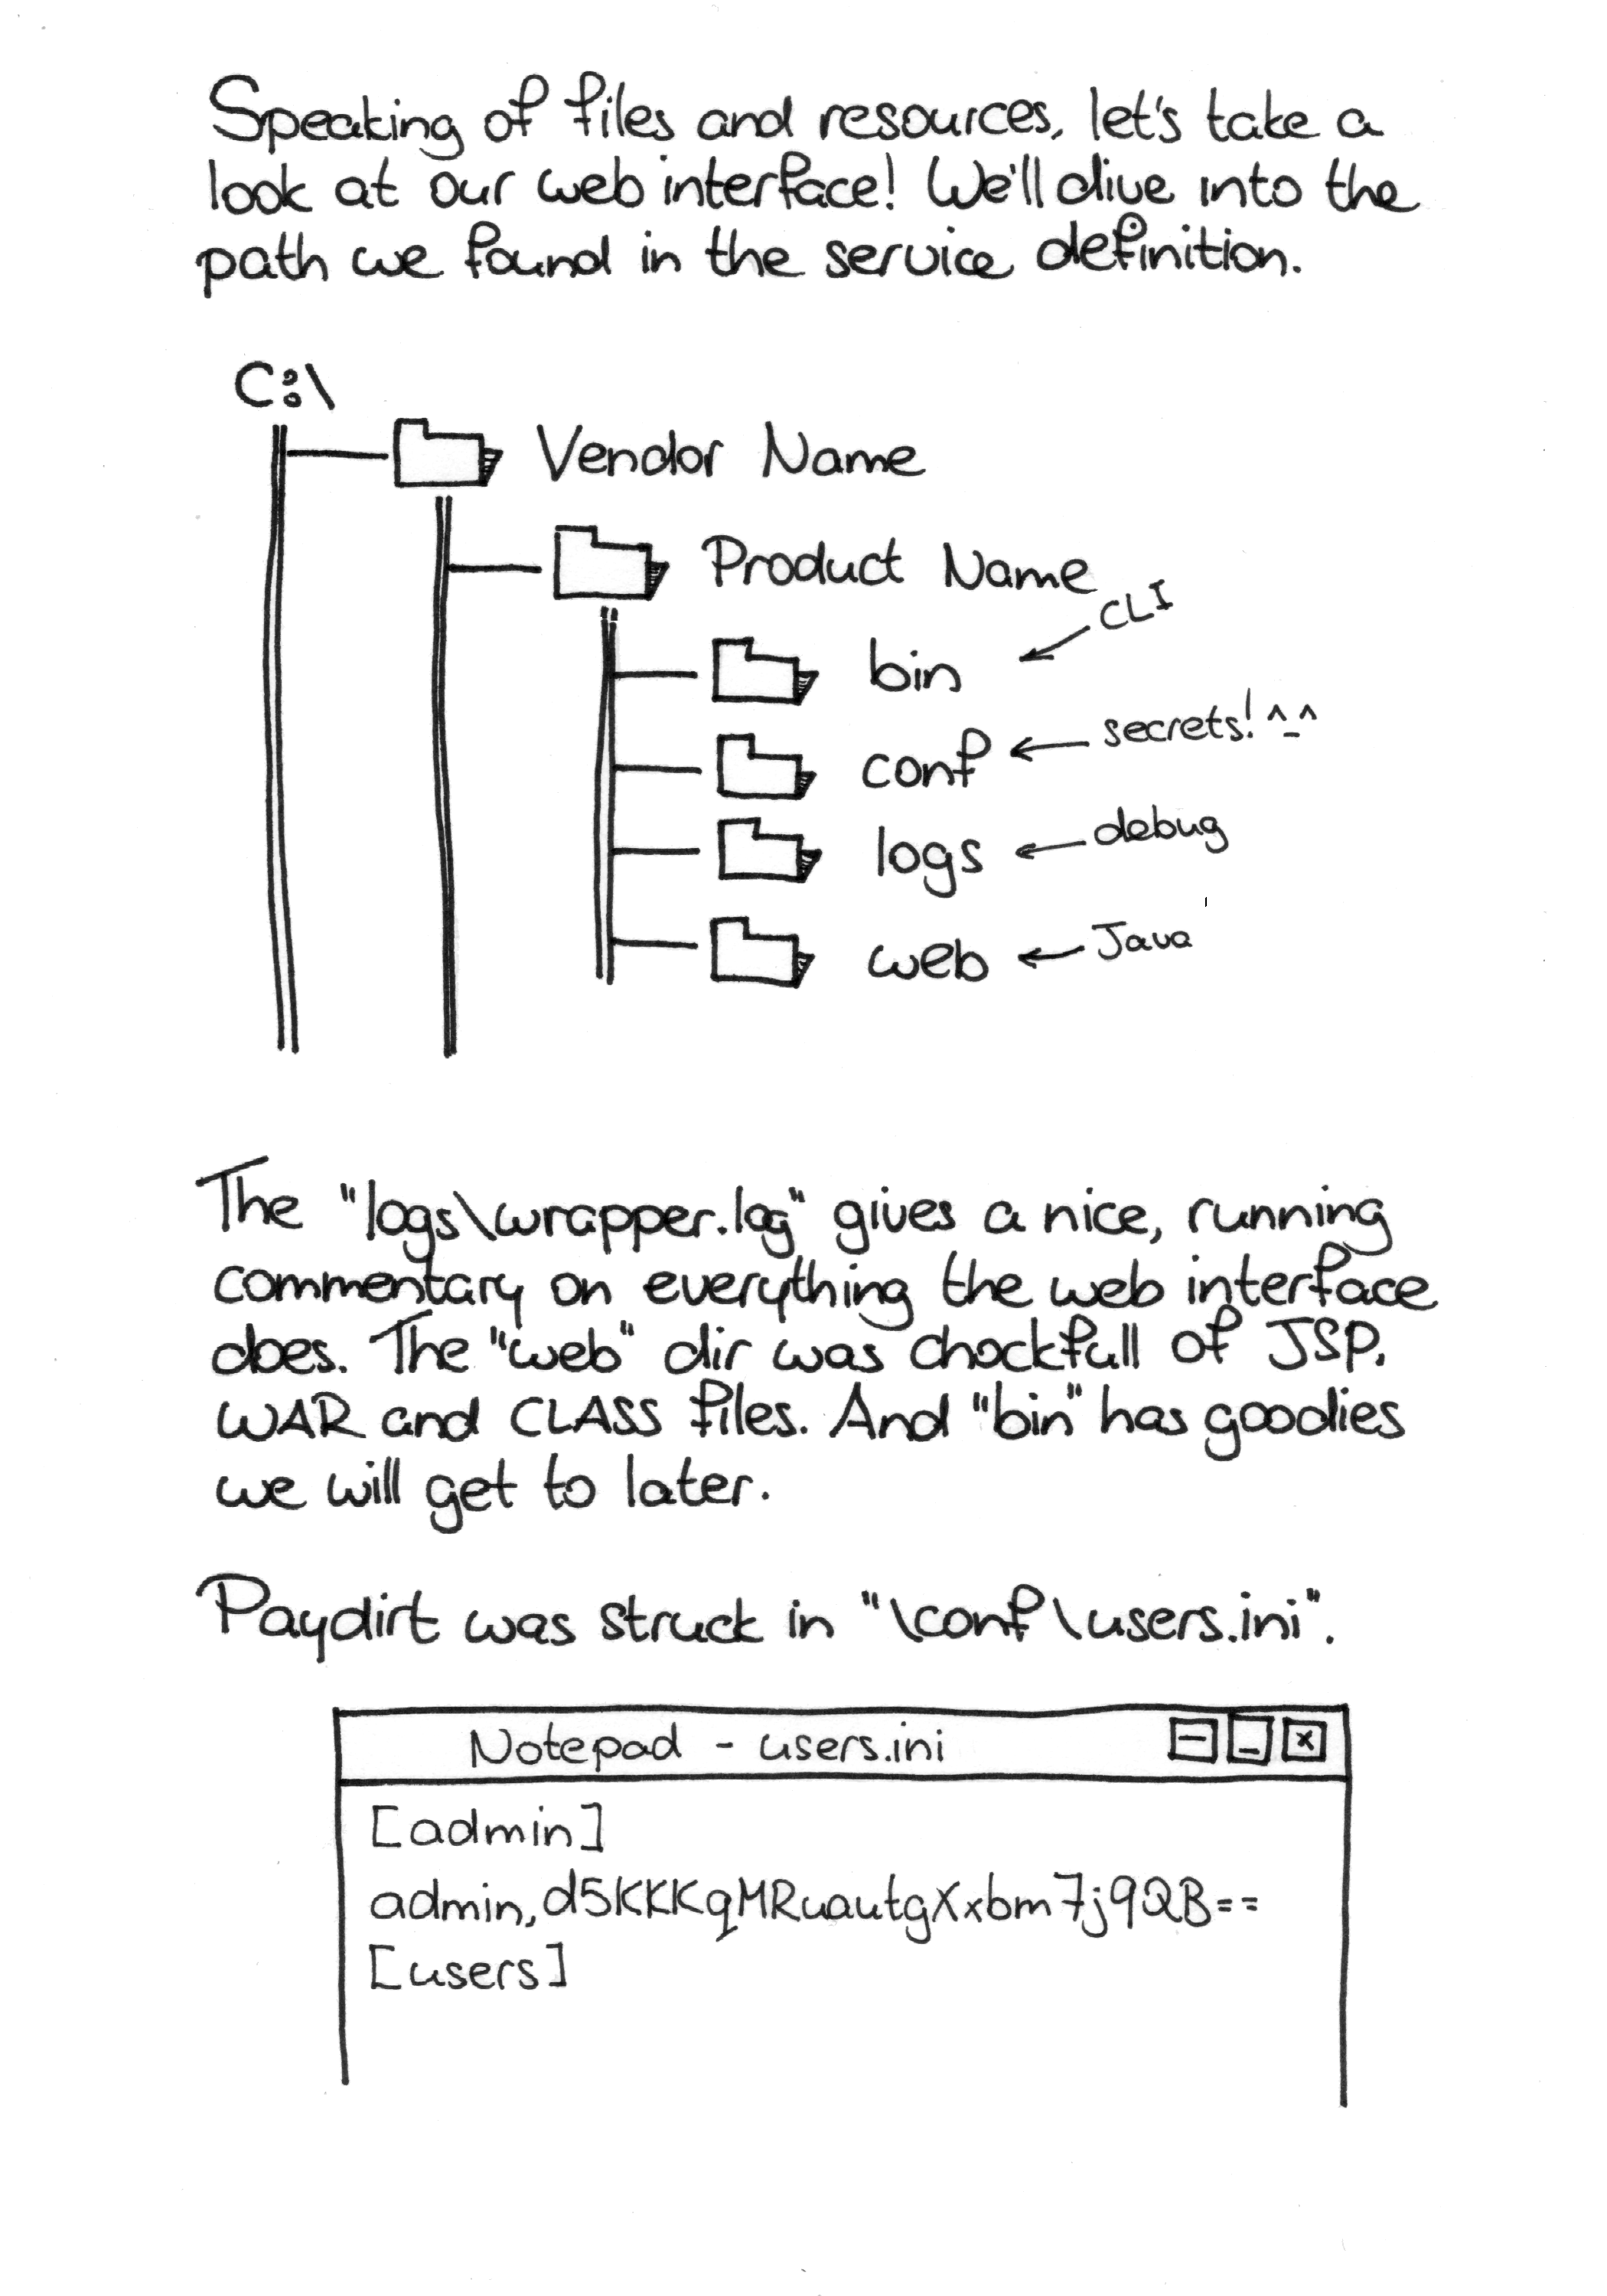 Speaking of files and resources, let's take a
look at our web interface! We'll dive into the
path we found in the service definition.
C:\
Vendor Name
Product Name
CLI
bin
secrets! ^_^
conf
debug
logs
Java
web
The "logs\wrapper.log" gives a nice, running
commentary on everything the web interface
does. The "web" dir was chockfull of JSP,
WAR and CLASS files. And "bin" has goodies
we will get to later.
Paydirt was struck in "\conf\users.ini".
Notepad - users.ini
[admin]
admin,d5KKKqMRuautgXxbm7j9QB==
[users]